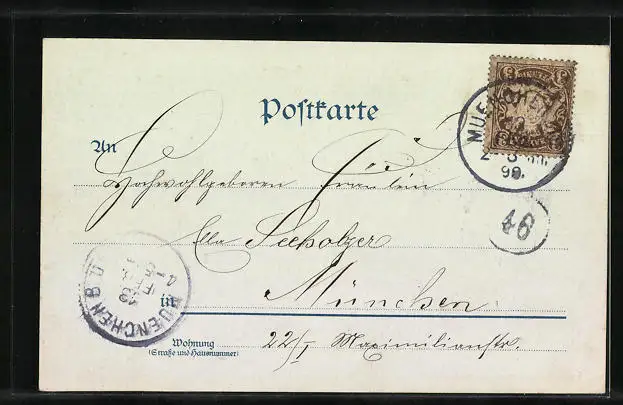 Postkarte
An
Hochwohlgeboren Fräulein
Ella Seeholzer
in München
Wohnung 22/I Maximilianstr.
(Straße und Hausnummer)
MUENCHEN
99.
46
MUENCHEN B
13
FEB
4-
3
3